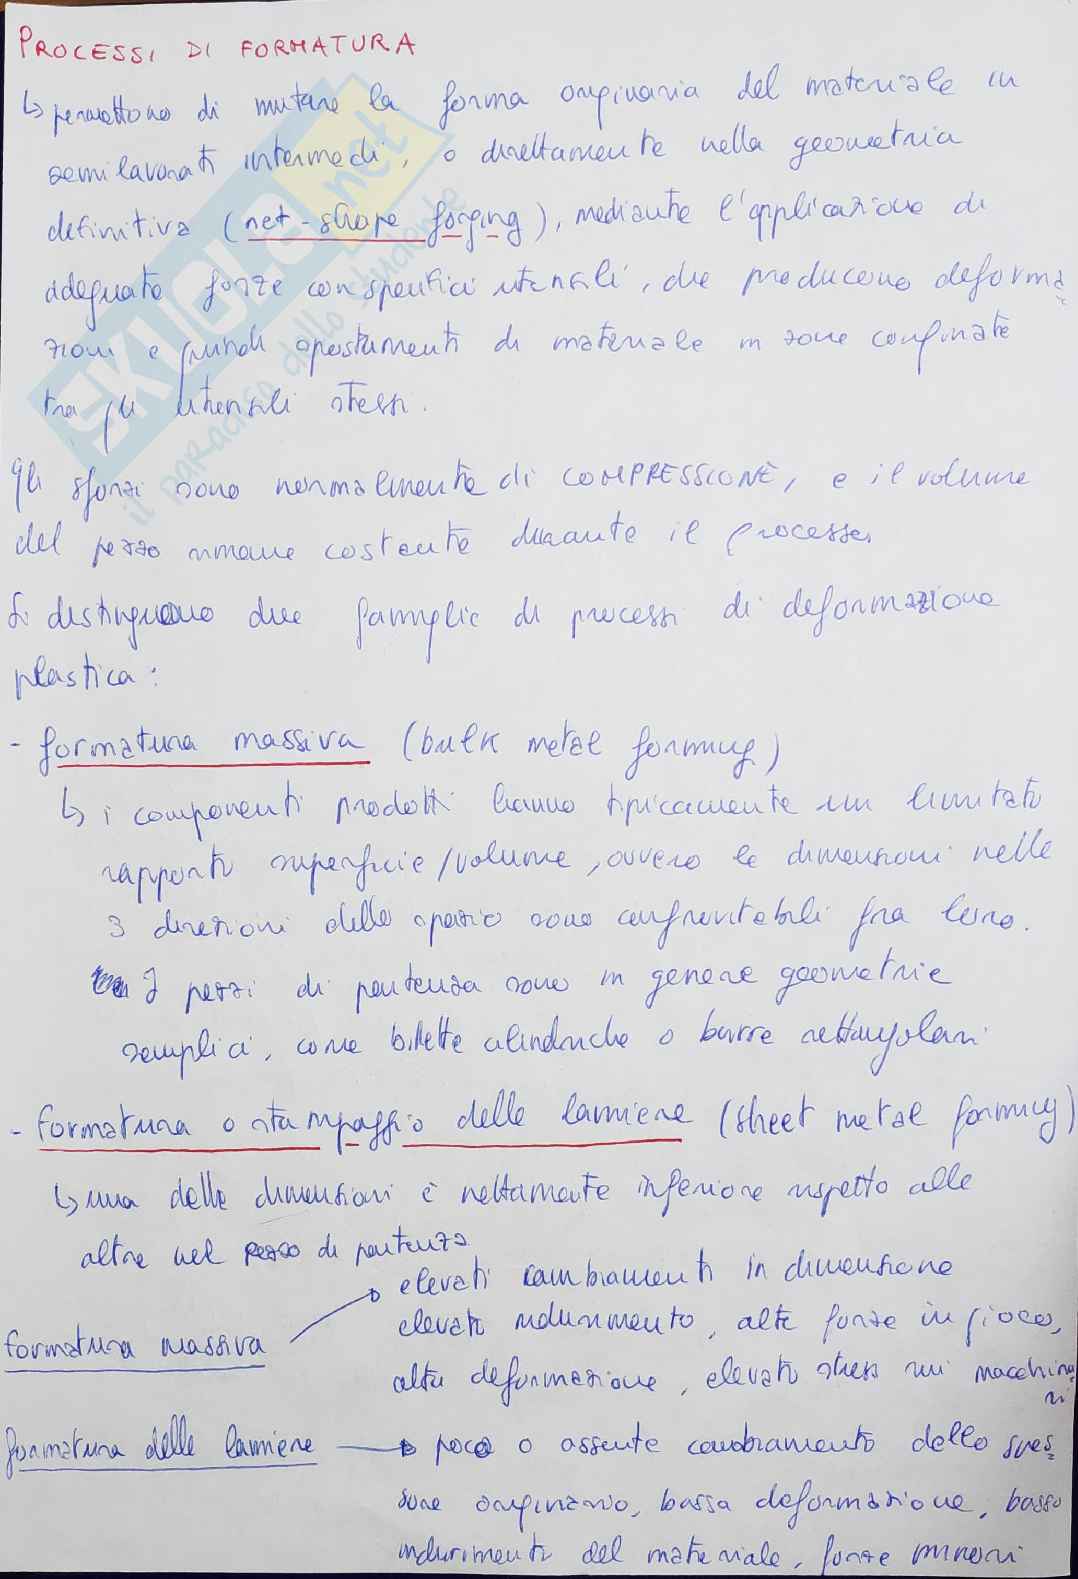 PROCESSI DI FORMATURA
↳ permettono di mutare la forma originaria del materiale in
semilavorati intermedi, o direttamente nella geometria
definitiva (net-shape forging), mediante l'applicazione di
adeguate forze con specifici utensili, che producono deforma
zioni e quindi spostamenti di materiale in zone confinate
tra gli utensili stessi.
Gli sforzi sono normalmente di COMPRESSIONE, e il volume
del pezzo rimane costante durante il processo.
Si distinguono due famiglie di processi di deformazione
plastica:
- formatura massiva (bulk metal forming)
↳ i componenti prodotti hanno tipicamente un limitato
rapporto superficie/volume, ovvero le dimensioni nelle
3 direzioni dello spazio sono confrontabili fra loro.
I pezzi di partenza sono in genere geometrie
semplici, come billette cilindriche o barre rettangolari
- formatura o stampaggio delle lamiere (sheet metal forming)
↳ una delle dimensioni è nettamente inferiore rispetto alle
altre nel pezzo di partenza
formatura massiva → elevati cambiamenti in dimensione
elevato indurimento, alte forze in gioco,
alta deformazione, elevato stress sui macchina
ri
formatura delle lamiere → poco o assente cambiamento dello spes
sore originario, bassa deformazione, basso
indurimento del materiale, forze minori
SKUOLA.net
il paradiso dello studente